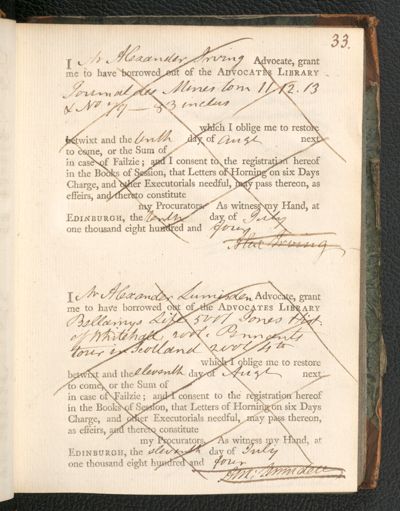 33.
I Mr Alexander Irving Advocate, grant
me to have borrowed out of the ADVOCATES LIBRARY
Journal des Mines tom 11 12. 13
& No. 79 — 83 inclus
which I oblige me to restore
betwixt and the tenth day of Augt next
to come, or the Sum of
in case of Failzie; and I consent to the registration hereof
in the Books of Session, that Letters of Horning on six Days
Charge, and other Executorials needful, may pass thereon, as
effeirs, and thereto constitute
my Procurators. As witness my Hand, at
EDINBURGH, the tenth day of July
one thousand eight hundred and four
Alex Irving
I Mr Alexander Lumisden Advocate, grant
me to have borrowed out of the ADVOCATES LIBRARY
Bellamys Life 3 vol Jones Hist
of 2 vol. Pennants
tour in Scotland 2 vol 4to
which I oblige me to restore
betwixt and the eleventh day of Augt next
to come, or the Sum of
in case of Failzie; and I consent to the registration hereof
in the Books of Session, that Letters of Horning on six Days
Charge, and other Executorials needful, may pass thereon,
as effeirs, and thereto constitute
my Procurators. As witness my Hand, at
EDINBURGH, the eleventh day of July
one thousand eight hundred and four